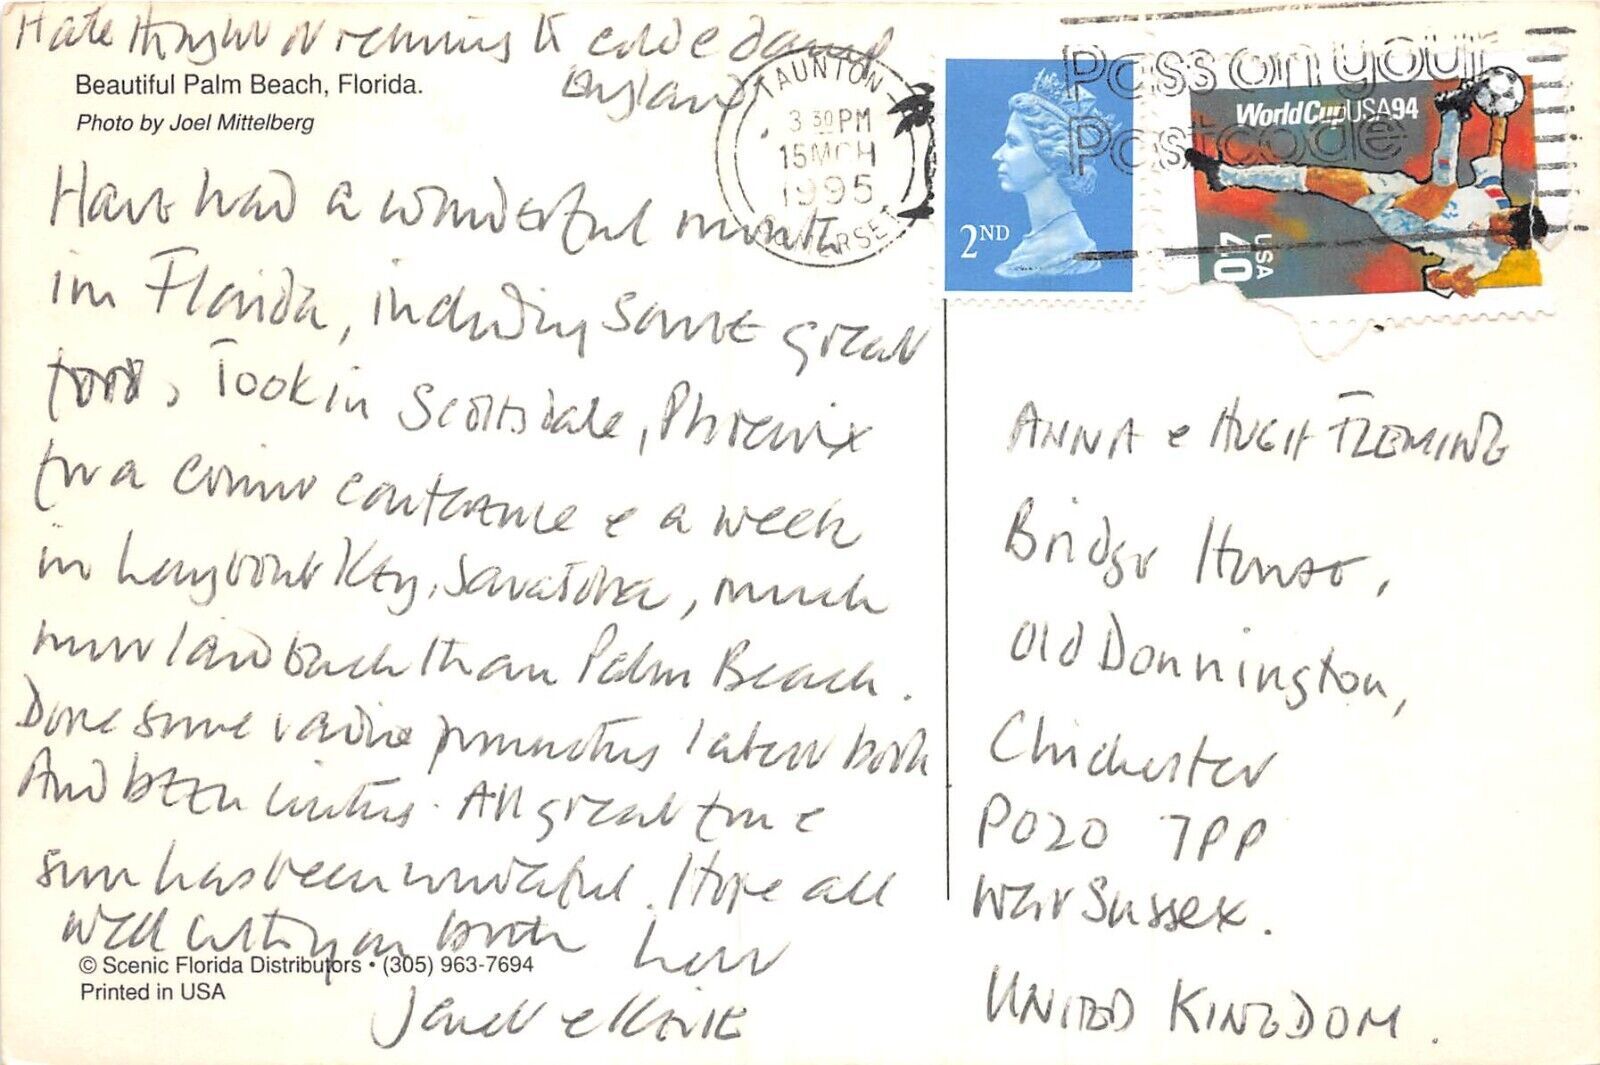 Hate thought of returning to cold & damp
England.
Beautiful Palm Beach, Florida.
Photo by Joel Mittelberg
Have had a wonderful month
in Florida, including some great
food, Took in Scottsdale, Phoenix
for a crime conference & a week
in Longboat Key, Sarasota, much
more laid back than Palm Beach.
Done some radio promoting latest book
And been writing. All great fun &
sun has been wonderful. Hope all
well with you both
© Scenic Florida Distributors • (305) 963-7694
Printed in USA
TAUNTON
3 30 PM
15 MCH
1995
SOMERSET
Pass on your
Postcode
2ND
World Cup USA 94
USA
40
ANNA & HUGH FLEMING
Bridge House,
Old Donnington,
Chichester
PO20 7PP
West Sussex.
UNITED KINGDOM.